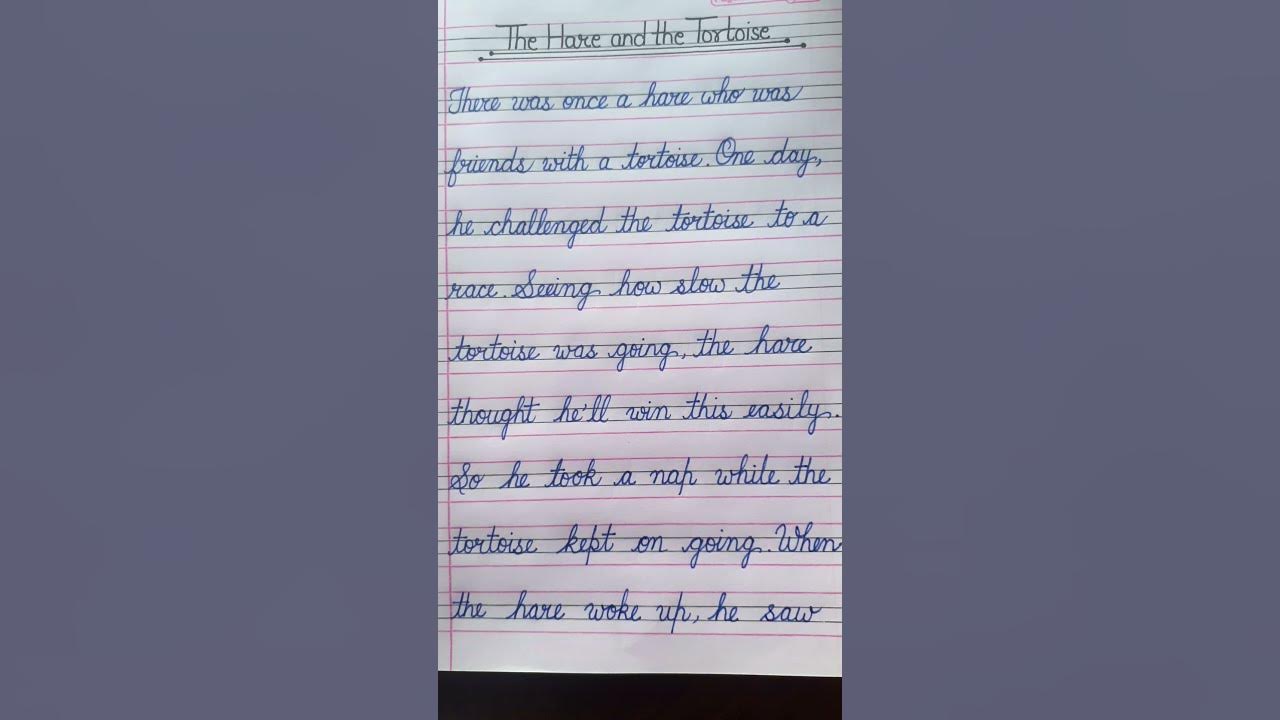 The Hare and the Tortoise
There was once a hare who was
friends with a tortoise. One day,
he challenged the tortoise to a
race. Seeing how slow the
tortoise was going, the hare
thought he'll win this easily.
So he took a nap while the
tortoise kept on going. When
the hare woke up, he saw